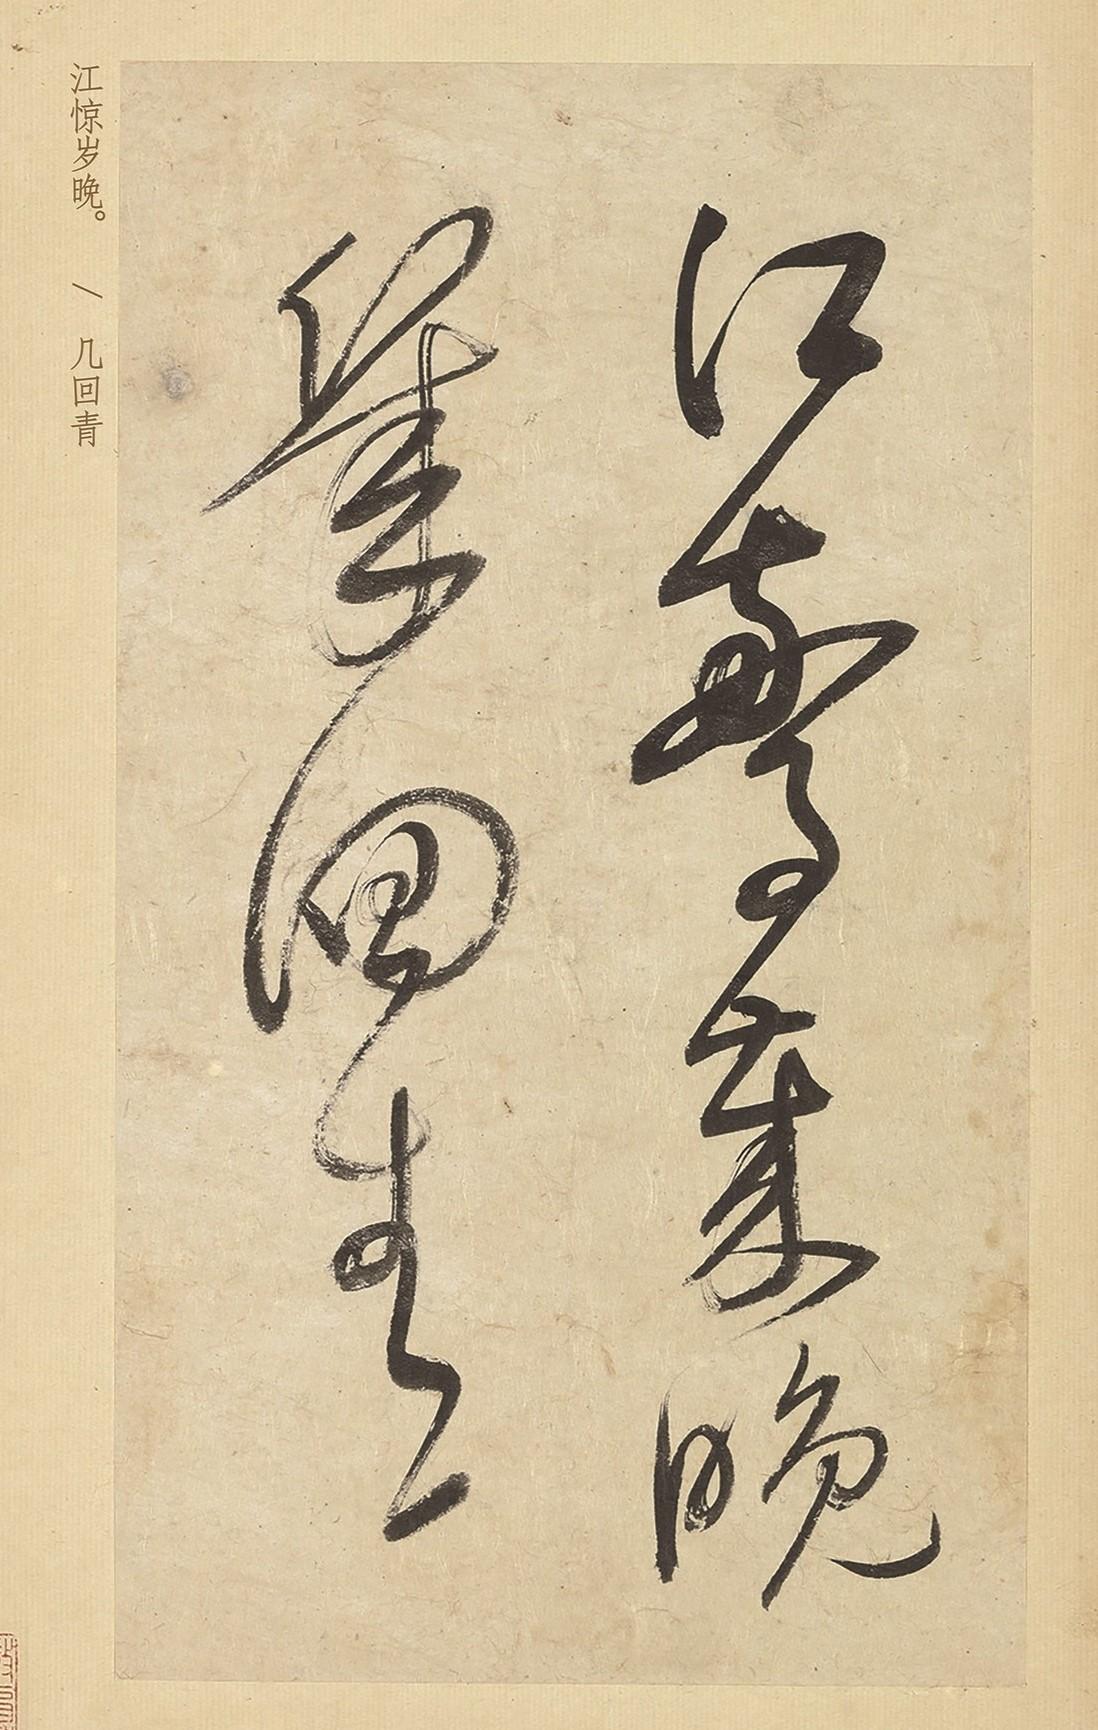 江驚歲晚
幾回青
江惊岁晚。 / 几回青